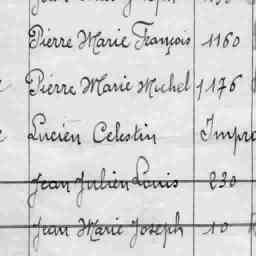 Pierre Marie François 1160
Pierre Marie Michel 1176
Lucien Celestin Impro
Jean Julien Louis 230
Jean Marie Joseph 10